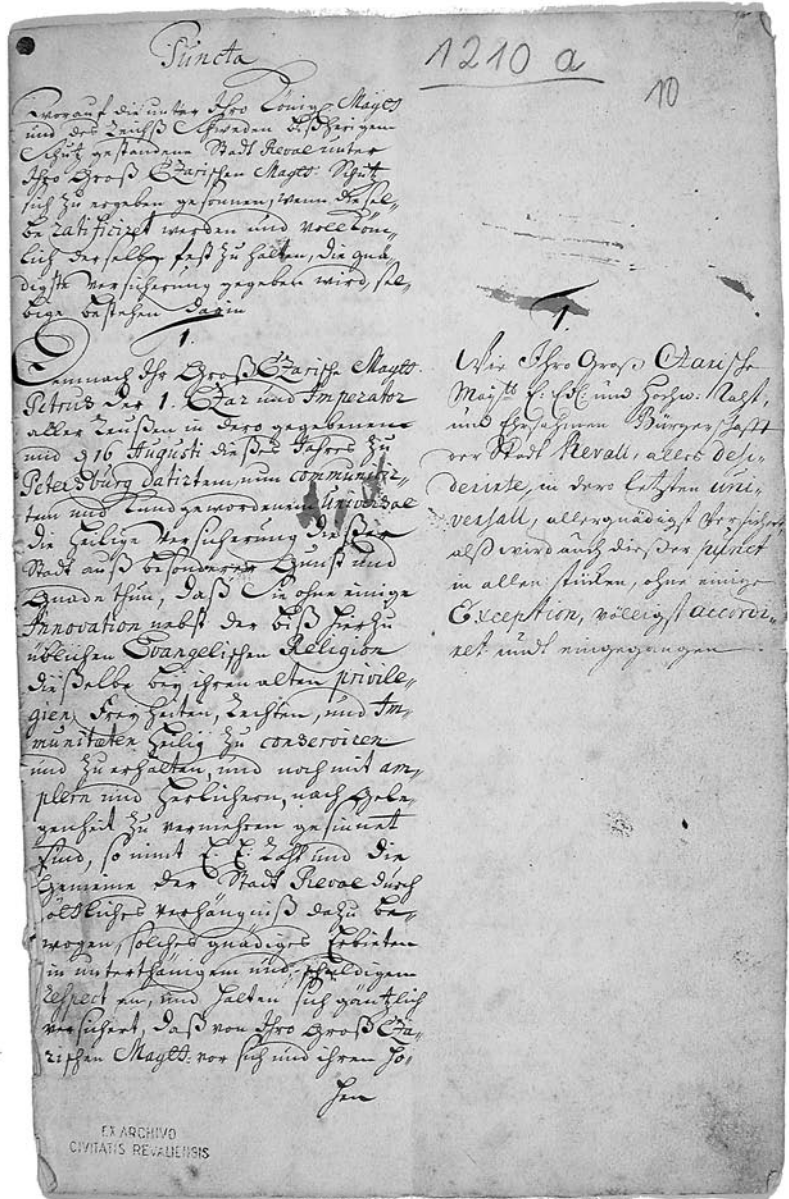 Puncta
1210 a
10
worauf die unter Ihro Königl Maytt
und des Reichß Schweden bißherigem
Schutz gestandene Stadt Reval unter
Ihro Groß Czarischen Maytt: Schutz
sich zu ergeben gesonnen, wenn diesel-
be ratificiret werden und vollköm-
lich derselben fest zu halten, die gnä-
digste Versicherung gegeben wird, sel-
bige bestehen darin
1.
Demnach Ihr Groß Czarische Maytt.
Petrus der 1. Czar und Imperator
aller Reußen in dero gegebenen
und d 16 Augusti dießes Jahres zu
Petersburg datirtem, nun communicir-
tem und kundgewordenem Universal
die heilige Versicherung dießer
Stadt auß besonderer Gunst und
Gnade thun, daß Sie ohne einige
Innovation nebst der biß hierzu
üblichen Evangelischen Religion
dießelbe bey ihren alten privile-
gien, Freyheiten, Rechten, und Im-
munitæten heilig zu conserviren
und zu erhalten, und noch mit am-
plern und herlichern, nach Gele-
genheit zu vermehren gesinnet
sind, so nimt E. E. Raht und die
Gemeine der Stadt Reval durch
Göttliches Verhängniß dazu be-
wogen, solches gnädiges Erbieten
in unterthänigem und schuldigem
respect an, und halten sich gäntzlich
versichert, daß von Ihro Groß Cza-
rischen Maytt: vor sich und ihren Ho-
hen
1.
Wie Ihro Groß Czarische
Maijtt E: Edl: und Hochw: Raht,
und Ehrsahmen Bürgerschafft
der Stadt Revall, alles desi-
derirte, in dero letzten uni-
versall, allergnädigst versichert,
alß wird auch dießer punct
in allen stücken, ohne einige
Exception, völligst accordi-
ret undt eingegangen.
EX ARCHIVO
CIVITATIS REVALIENSIS